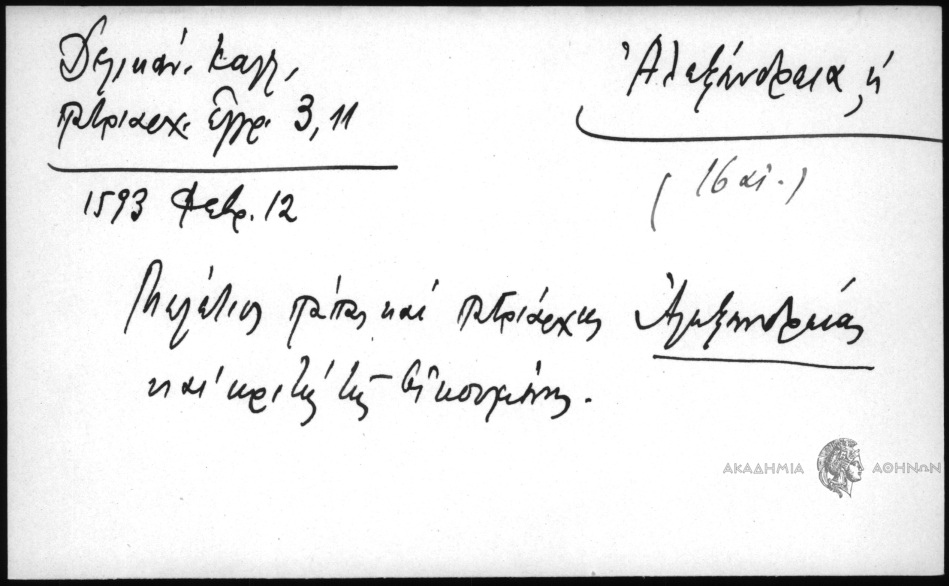 Δελικάν. Καλλ,
Πατριαρχ. Ἔγγρ. 3,11
Ἀλεξάνδρεια, ἡ
(16 αἰ.)
1593 Φεβρ. 12
Μελέτιος πάπας καί πατριάρχης Ἀλεξανδρείας
καί κριτής τῆς Οἰκουμένης.
ΑΚΑΔΗΜΙΑ ΑΘΗΝΩΝ